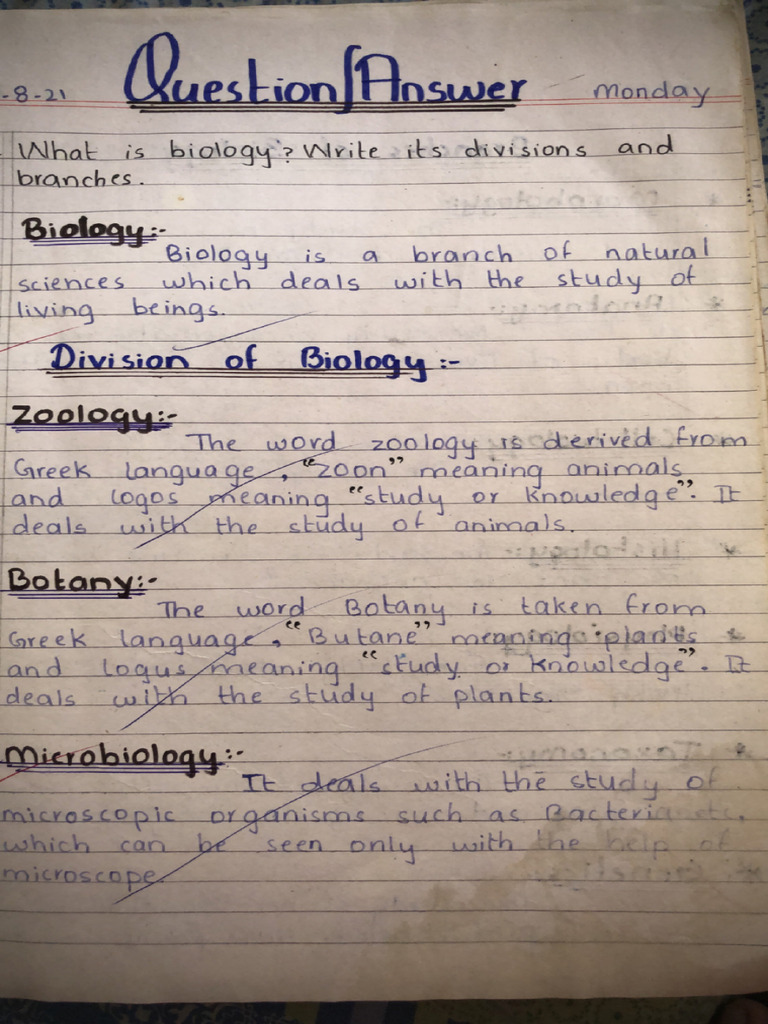 -8-21 Question/Answer monday
What is biology? Write its divisions and
branches.
Biology:-
Biology is a branch of natural
sciences which deals with the study of
living beings.
Division of Biology:-
Zoology:-
The word zoology is derived from
Greek language, "zoon" meaning animals
and logos meaning "study or knowledge". It
deals with the study of animals.
Botany:-
The word Botany is taken from
Greek language, "Butane" meaning plants
and logus meaning "study or knowledge". It
deals with the study of plants.
Microbiology:-
It deals with the study of
microscopic organisms such as Bacteria etc.
which can be seen only with the help of
microscope.